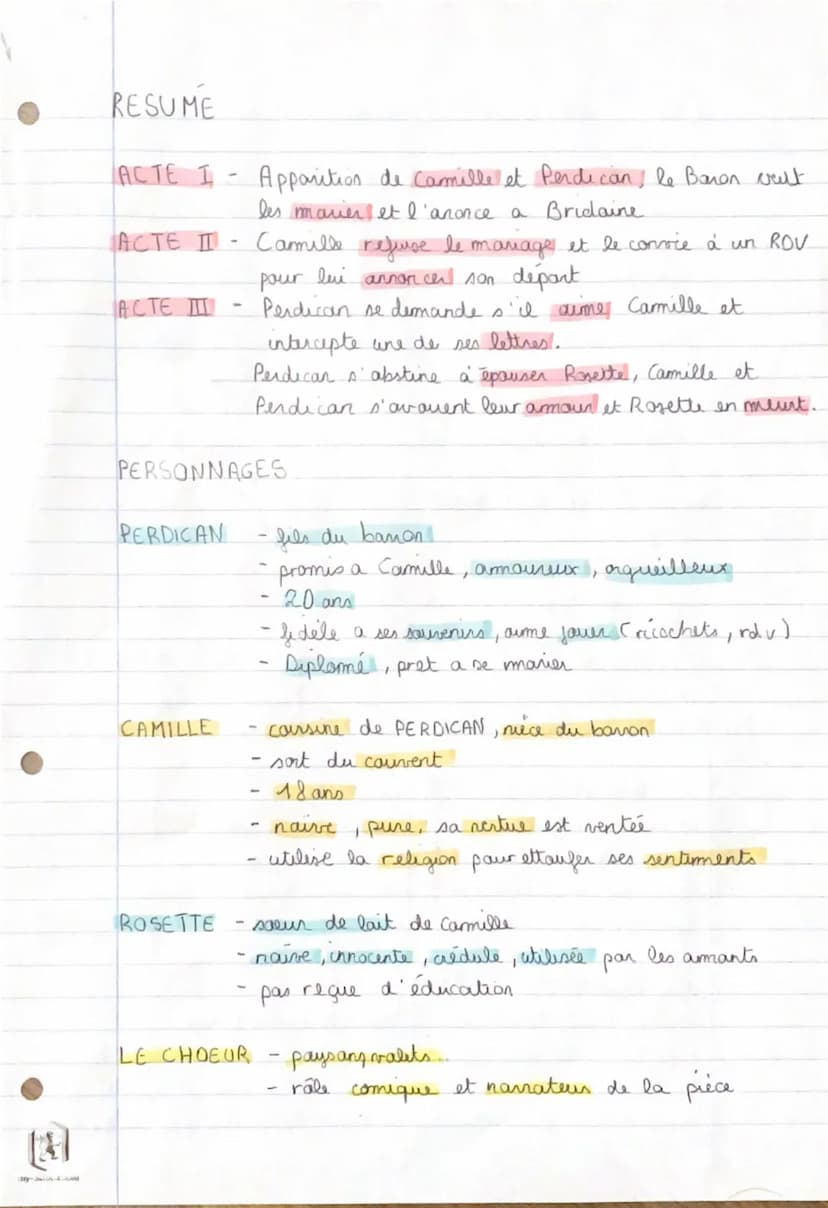 RESUMÉ
ACTE I - Apparition de Camille et Perdican, le Baron veut
les marier et l'anonce a Bridaine
ACTE II - Camille refuse le mariage et le convie à un RDV
pour lui annoncer son départ
ACTE III - Perdican se demande s'il aime Camille et
intercepte une de ses lettres.
Perdican s'abstine à épouser Rosette, Camille et
Perdican s'avouent leur amour et Rosette en meurt.
PERSONNAGES
PERDICAN - fils du baron
- promis a Camille, amoureux, orgueilleux
- 20 ans
- fidèle a ses souvenirs, aime jouer (ricochets, rdv)
- Diplomé, pret a se marier
CAMILLE - cousine de PERDICAN, nièce du baron
- sort du couvent
- 18 ans
- naive, pure, sa vertue est ventée
- utilise la religion pour ettoufer ses sentiments
ROSETTE - soeur de lait de Camille
- naïve, innocente, crédule, utilisée par les amants
- pas reçue d'éducation
LE CHOEUR - paysans, valets...
- rôle comique et narrateur de la pièce